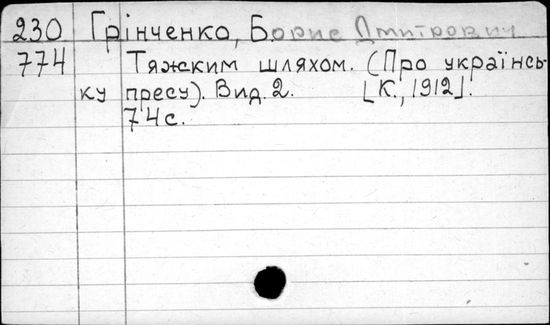 230 Грінченко, Борис Дмитрович
774 Тяжским шляхом. (Про українсь-
ку пресу). Вид. 2. [К., 1912].
74с.